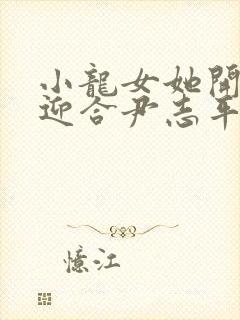 小龍女她開
迎合尹志平
憶江